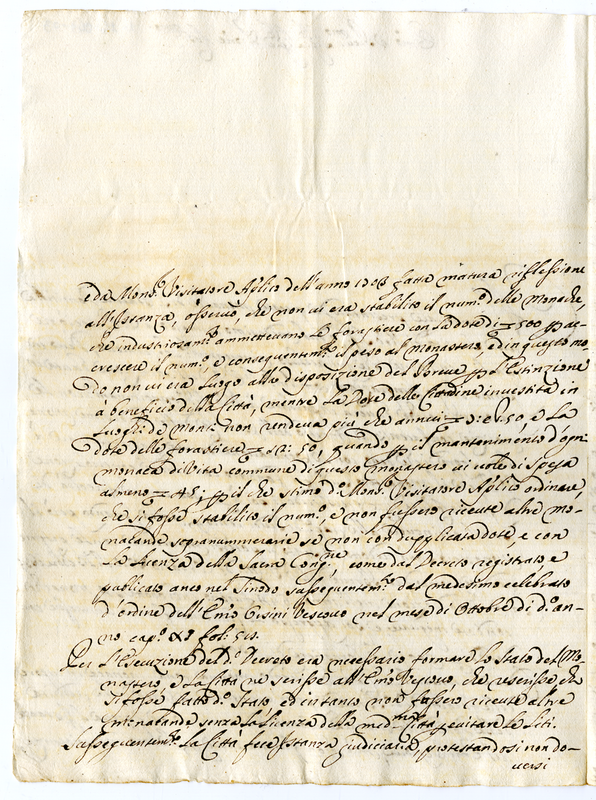 e da Mons.r Visitatore Ap.lico dell'anno 1703 fatta matura riflessione
all'Istanza, osservò, che non vi era stabilito il num.o delle Monache,
che industriosam.te ammettevano le forastiere con la dote di 500 p ac-
crescere il num.o, e conseguentem.te il peso al monastero, ed in questo mo-
do non vi era luogo alla disposizione del Breve p l'Estinzione
à beneficio della Città, mentre la Dote delle Cittadine investita in
luoghi di Monti non rendeva più che annui 50 e la
dote delle forastiere : 50, quando p il mantenimento d'ogni
monaca di vita commune di questo monastero vi vole di spesa
almeno 45, p il che stimò d.o Mons.r Visitatore Ap.lico ordinare,
che si fosse stabilito il num.o, e non fussero ricevute altre mo-
nacande sopranumerarie se non con duplicata dote, e con
la licenza della Sacra Cong.ne, come dal Decreto registrato, e
publicato anco nel Sinodo sussequentem.te dal medesimo celebrato
d'ordine dell'Em.o Vescovo nel mese di Ottobre di d.o an-
no cap.o fol: 515.
Per l'Esecuzione del d.o Decreto era necessario formare lo stato del Mo-
nastero, e la Città ne scrisse all'Em.o Vescovo, che rescrisse che
si fosse fatto d.o stato, ed intanto non fussero ricevute altre
monacande senza la licenza della med.ma Città p evitare le liti.
Sussequentem.te la Città fece Istanza giudiciaria protestandosi non do-
versi